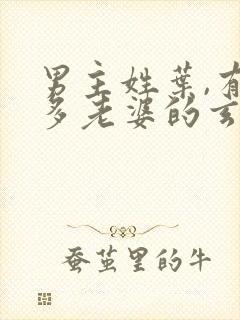 男主姓葉,有
多老婆的玄
蚕茧里的牛